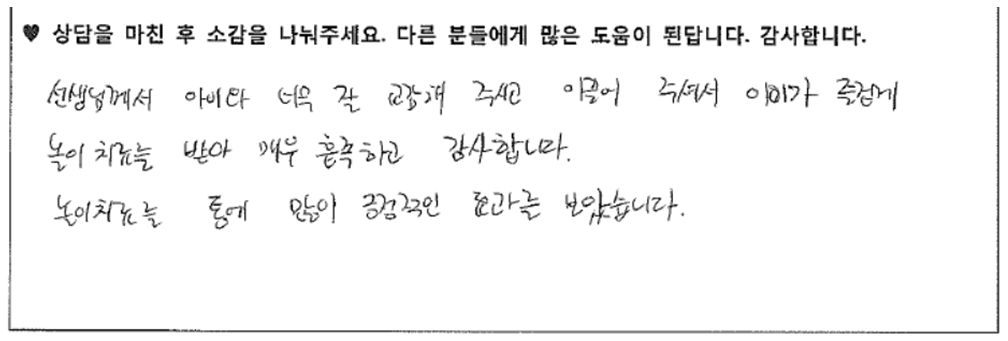 ♥ 상담을 마친 후 소감을 나눠주세요. 다른 분들에게 많은 도움이 된답니다. 감사합니다.
선생님께서 아이와 너무 잘 교감해 주시고 이끌어 주셔서 아이가 즐겁게
놀이치료를 받아 매우 흡족하고 감사합니다.
놀이치료를 통해 많이 긍정적인 효과를 보았습니다.